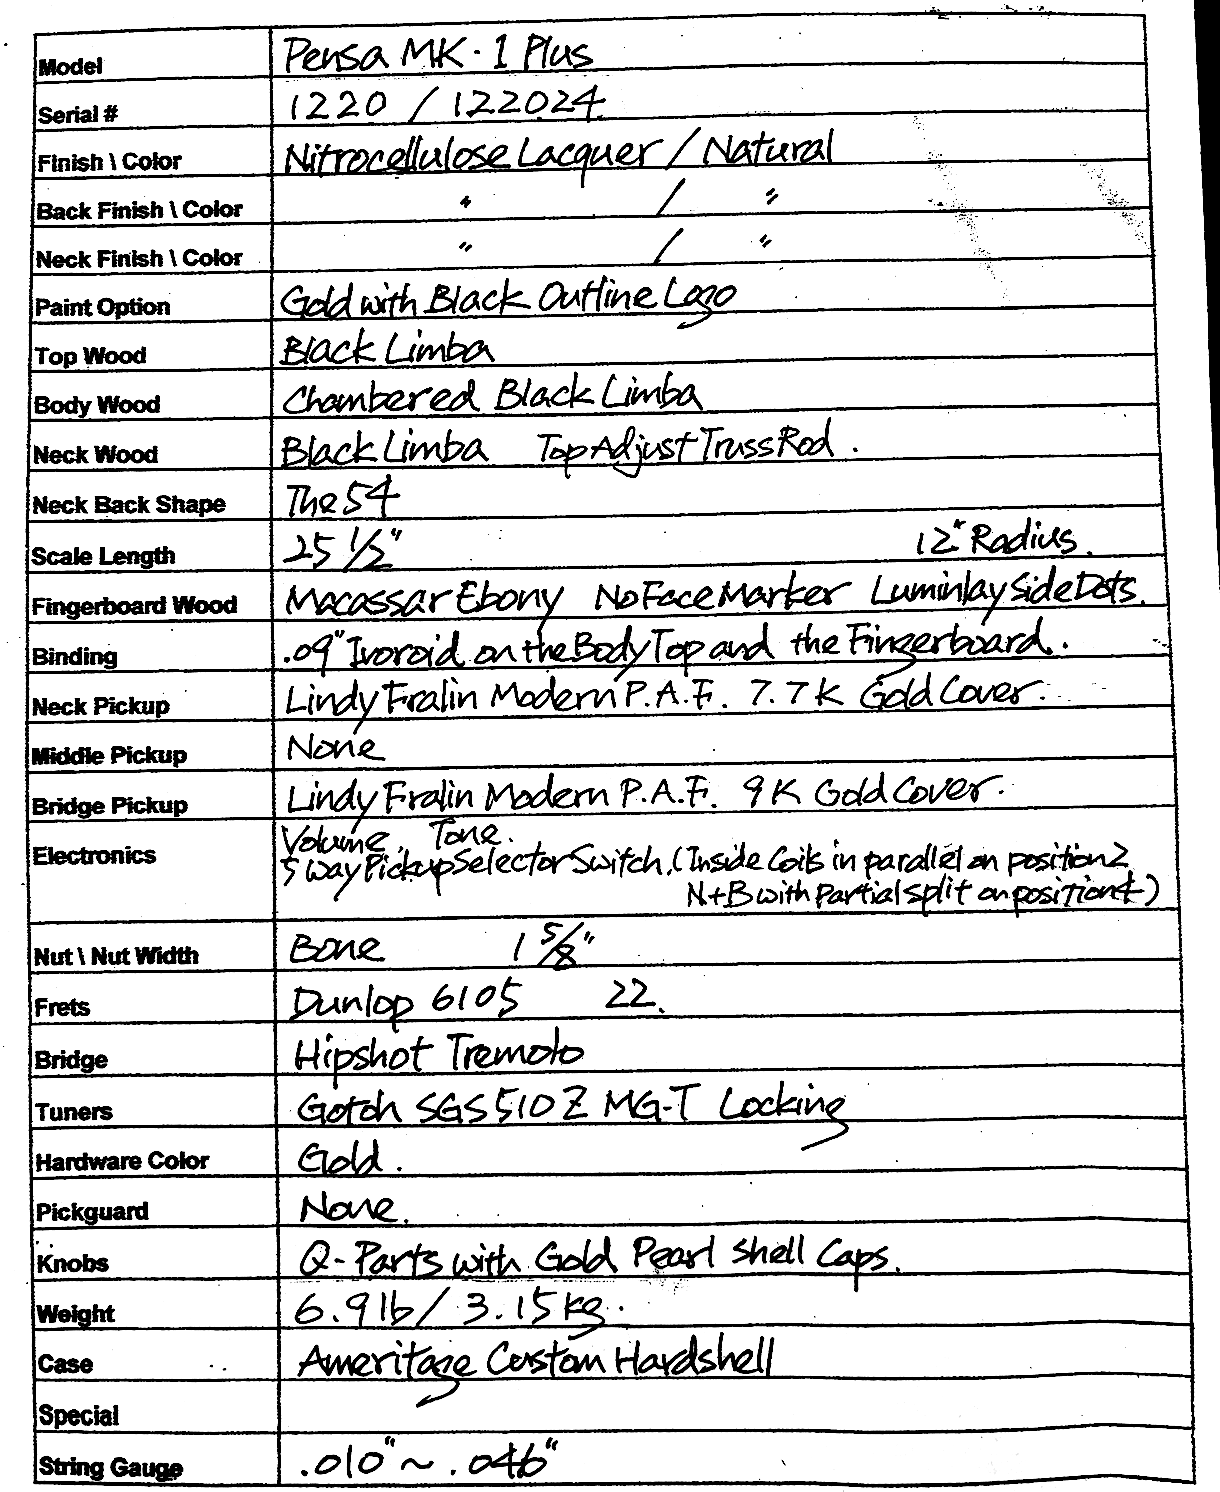 Model Pensa MK-1 Plus
Serial # 1220 / 122024
Finish \ Color Nitrocellulose Lacquer / Natural
Back Finish \ Color " / "
Neck Finish \ Color " / "
Paint Option Gold with Black Outline Logo
Top Wood Black Limba
Body Wood Chambered Black Limba
Neck Wood Black Limba Top Adjust Truss Rod.
Neck Back Shape The 54
Scale Length 25 1/2" 12" Radius.
Fingerboard Wood Macassar Ebony No Face Marker Luminlay Side Dots.
Binding .09" Ivoroid on the Body Top and the Fingerboard.
Neck Pickup Lindy Fralin Modern P.A.F. 7.7K Gold Cover.
Middle Pickup None
Bridge Pickup Lindy Fralin Modern P.A.F. 9K Gold Cover.
Volume, Tone.
Electronics 5 Way Pickup Selector Switch. (Inside Coils in parallel on position 2
N+B with Partial split on position 4)
Nut \ Nut Width Bone 1 5/8"
Frets Dunlop 6105 22.
Bridge Hipshot Tremolo
Tuners Gotoh SGS510Z MG-T Locking
Hardware Color Gold.
Pickguard None.
Knobs Q-Parts with Gold Pearl Shell Caps.
Weight 6.9 lb / 3.15 kg.
Case Ameritage Custom Hardshell
Special
String Gauge .010" ~ .046"